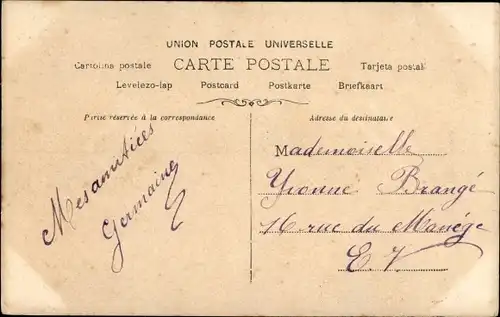 UNION POSTALE UNIVERSELLE
Cartolina postale CARTE POSTALE Tarjeta postal
Levelezo-lap Postcard Postkarte Briefkaart
Partie réservée à la correspondance
Adresse du destinataire
Mes amitiées
Germaine
Mademoiselle
Yvonne Brangé
16 rue du Manége
E. V.